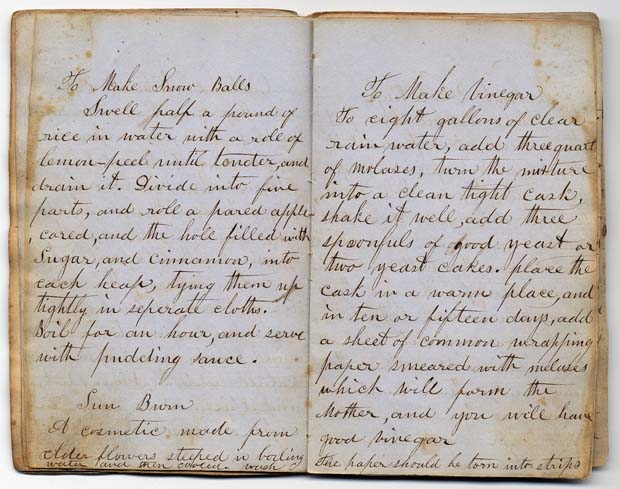 To Make Snow Balls
Swell half a pound of
rice in water with a roll of
lemon-peel until tender, and
drain it. Divide into five
parts, and roll a pared apple
, cored, and the hole filled with
Sugar, and cinnamon, into
each heap, tying them up
tightly in seperate cloths.
Boil for an hour, and serve
with pudding sauce.
Sun Burn
A cosmetic made from
elder flowers steeped in boiling
water and then cooled. wash
To Make Vinegar
To eight gallons of clear
rain water, add three quart
of molases, turn the mixture
into a clean tight cask,
shake it well, add three
spoonfuls of good yeast or
two yeast cakes. place the
cask in a warm place, and
in ten or fifteen days, add
a sheet of common wrapping
paper smeared with molases
which will form the
Mother, and you will have
good vinegar
The paper should be torn into strips